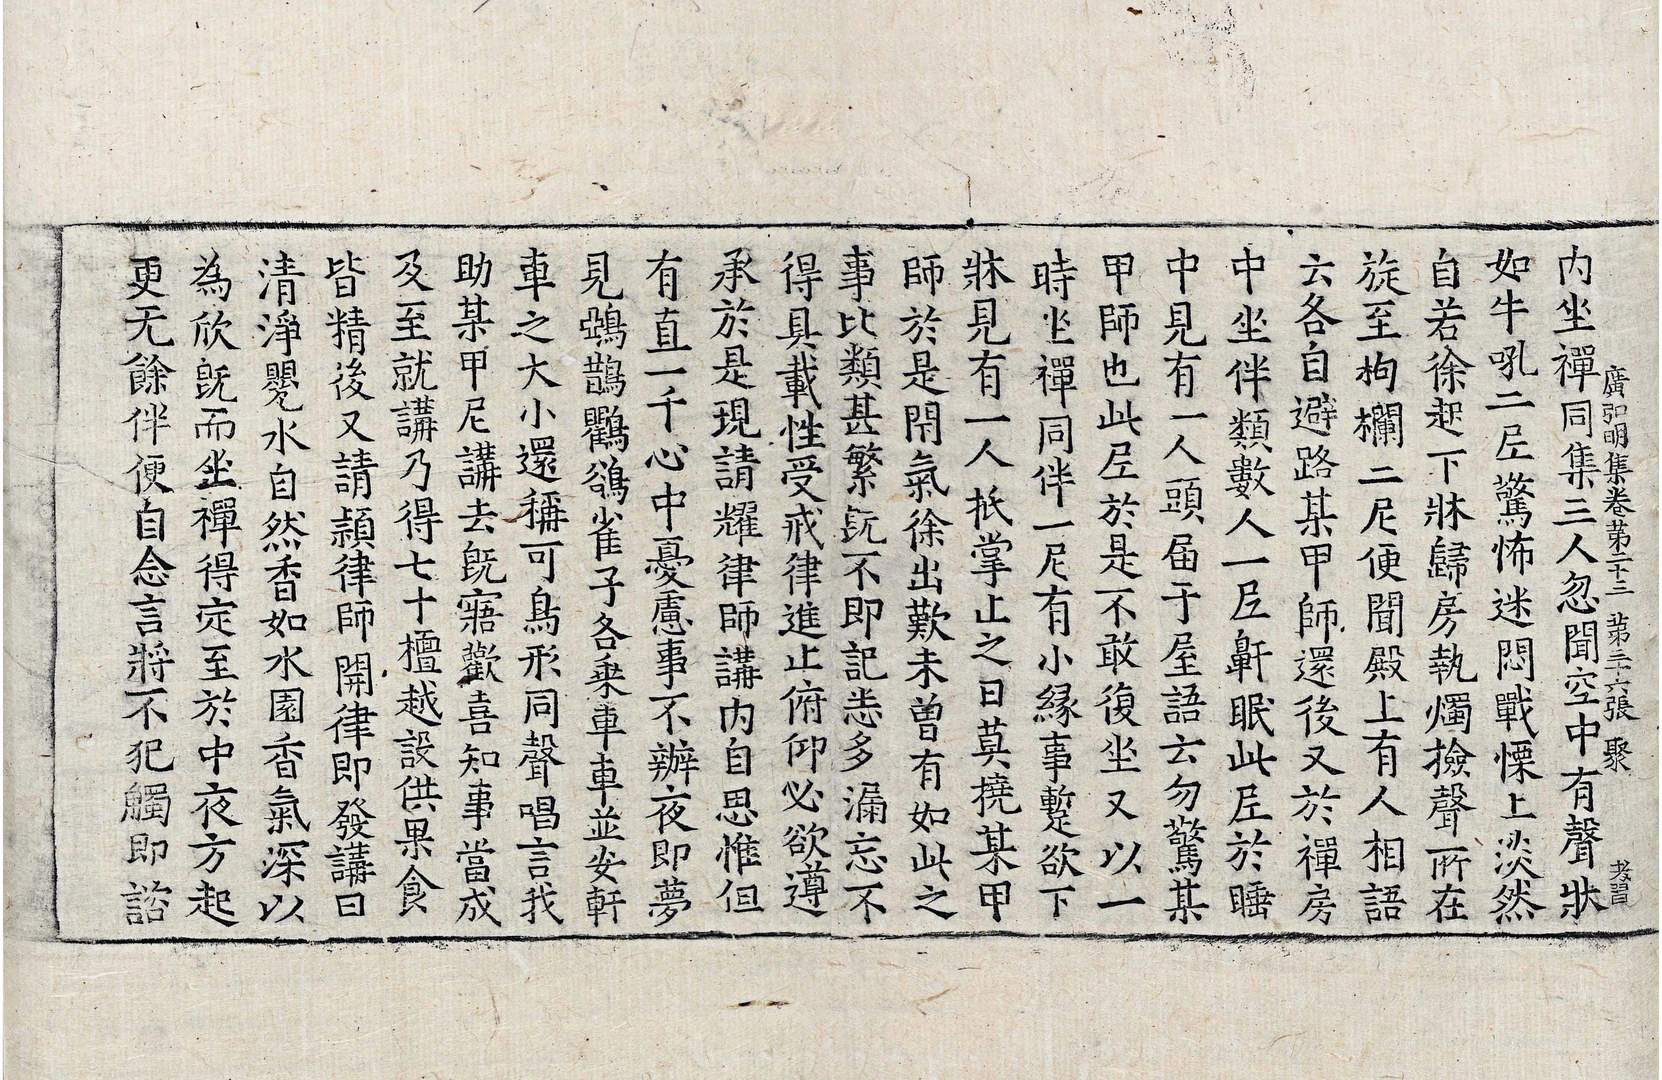 廣弘明集卷第二十三 第三十六張 聚 孝習
内坐禪同集三人忽聞空中有聲狀
如牛吼二尼驚怖迷悶戰慄上淡然
自若徐起下牀歸房執燭撿聲所在
旋至拘欄二尼便聞殿上有人相語
云各自避路某甲師還後又於禪房
中坐伴類數人一尼鼾眠此尼於睡
中見有一人頭届于屋語云勿驚某
甲師也此尼於是不敢復坐又以一
時坐禪同伴一尼有小緣事蹔欲下
牀見有一人抵掌止之曰莫撓某甲
師於是閇氣徐出歎未曾有如此之
事比類甚繁旣不即記悉多漏忘不
得具載性受戒律進止俯仰必欲遵
承於是現請耀律師講内自思惟但
有直一千心中憂慮事不辦夜即夢
見鵶鵲鸜鵒雀子各乗車車並安軒
車之大小還稱可鳥形同聲唱言我
助某甲尼講去旣寤歡喜知事當成
及至就講乃得七十檀越設供果食
皆精後又請頴律師開律即發講日
清淨甖水自然香如水園香氣深以
為欣旣而坐禪得定至於中夜方起
更无餘伴便自念言將不犯觸即諮